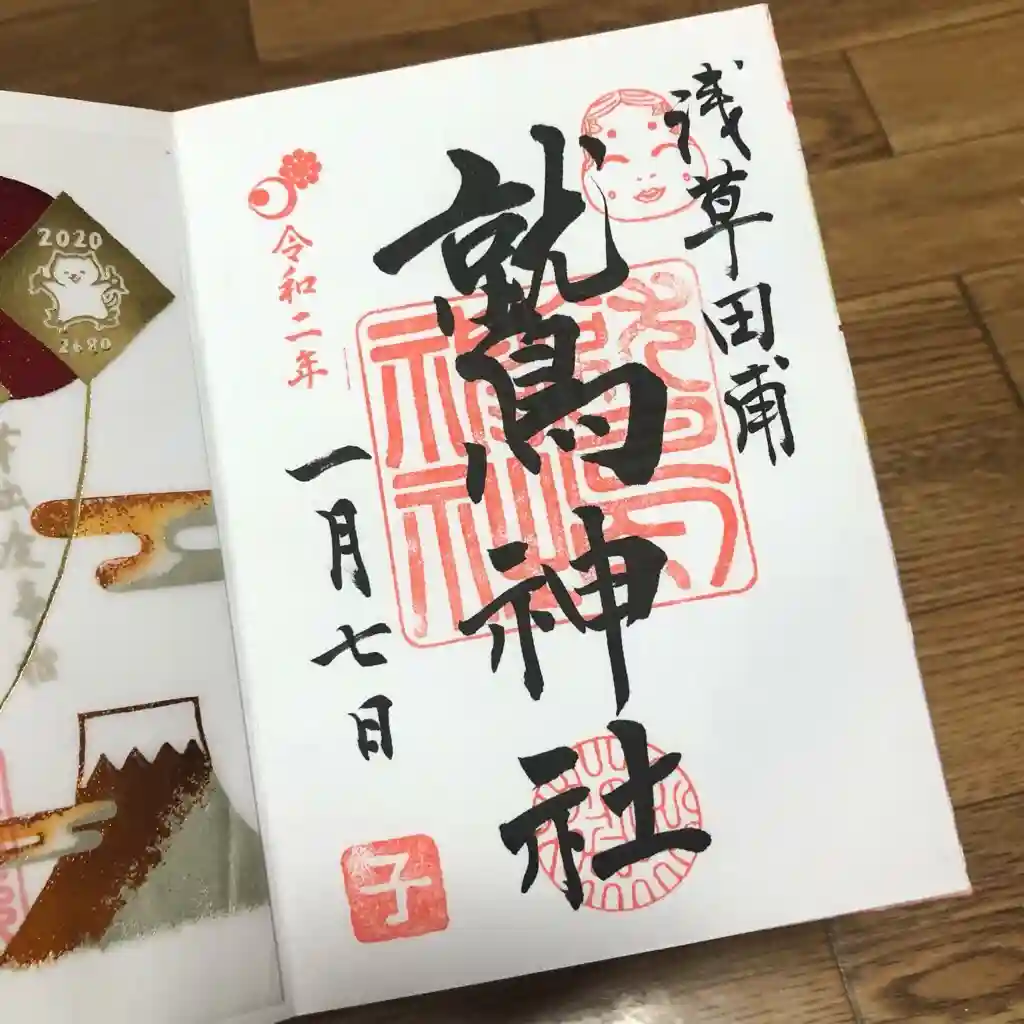 浅草田甫
鷲神社
令和二年
一月七日
子
2020
2680